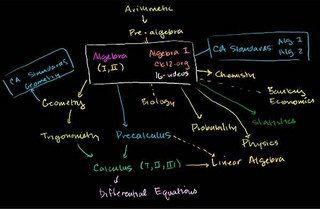 Arithmetic
Pre-algebra
Algebra
(I, II)
Algebra I
ck12.org
16-videos
CA Standards: Alg. 1
Alg. 2
CA Standards
Geometry
Chemistry
Banking
Economics
Geometry
Biology
Statistics
Probability
Physics
Trigonometry
Precalculus
Linear Algebra
Calculus (I, II, III)
Differential Equations